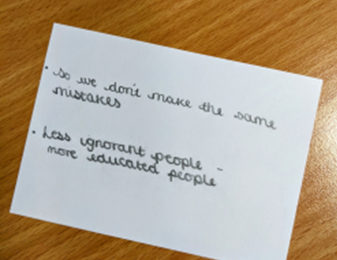 • So we don't make the same
mistakes
• Less ignorant people -
more educated people